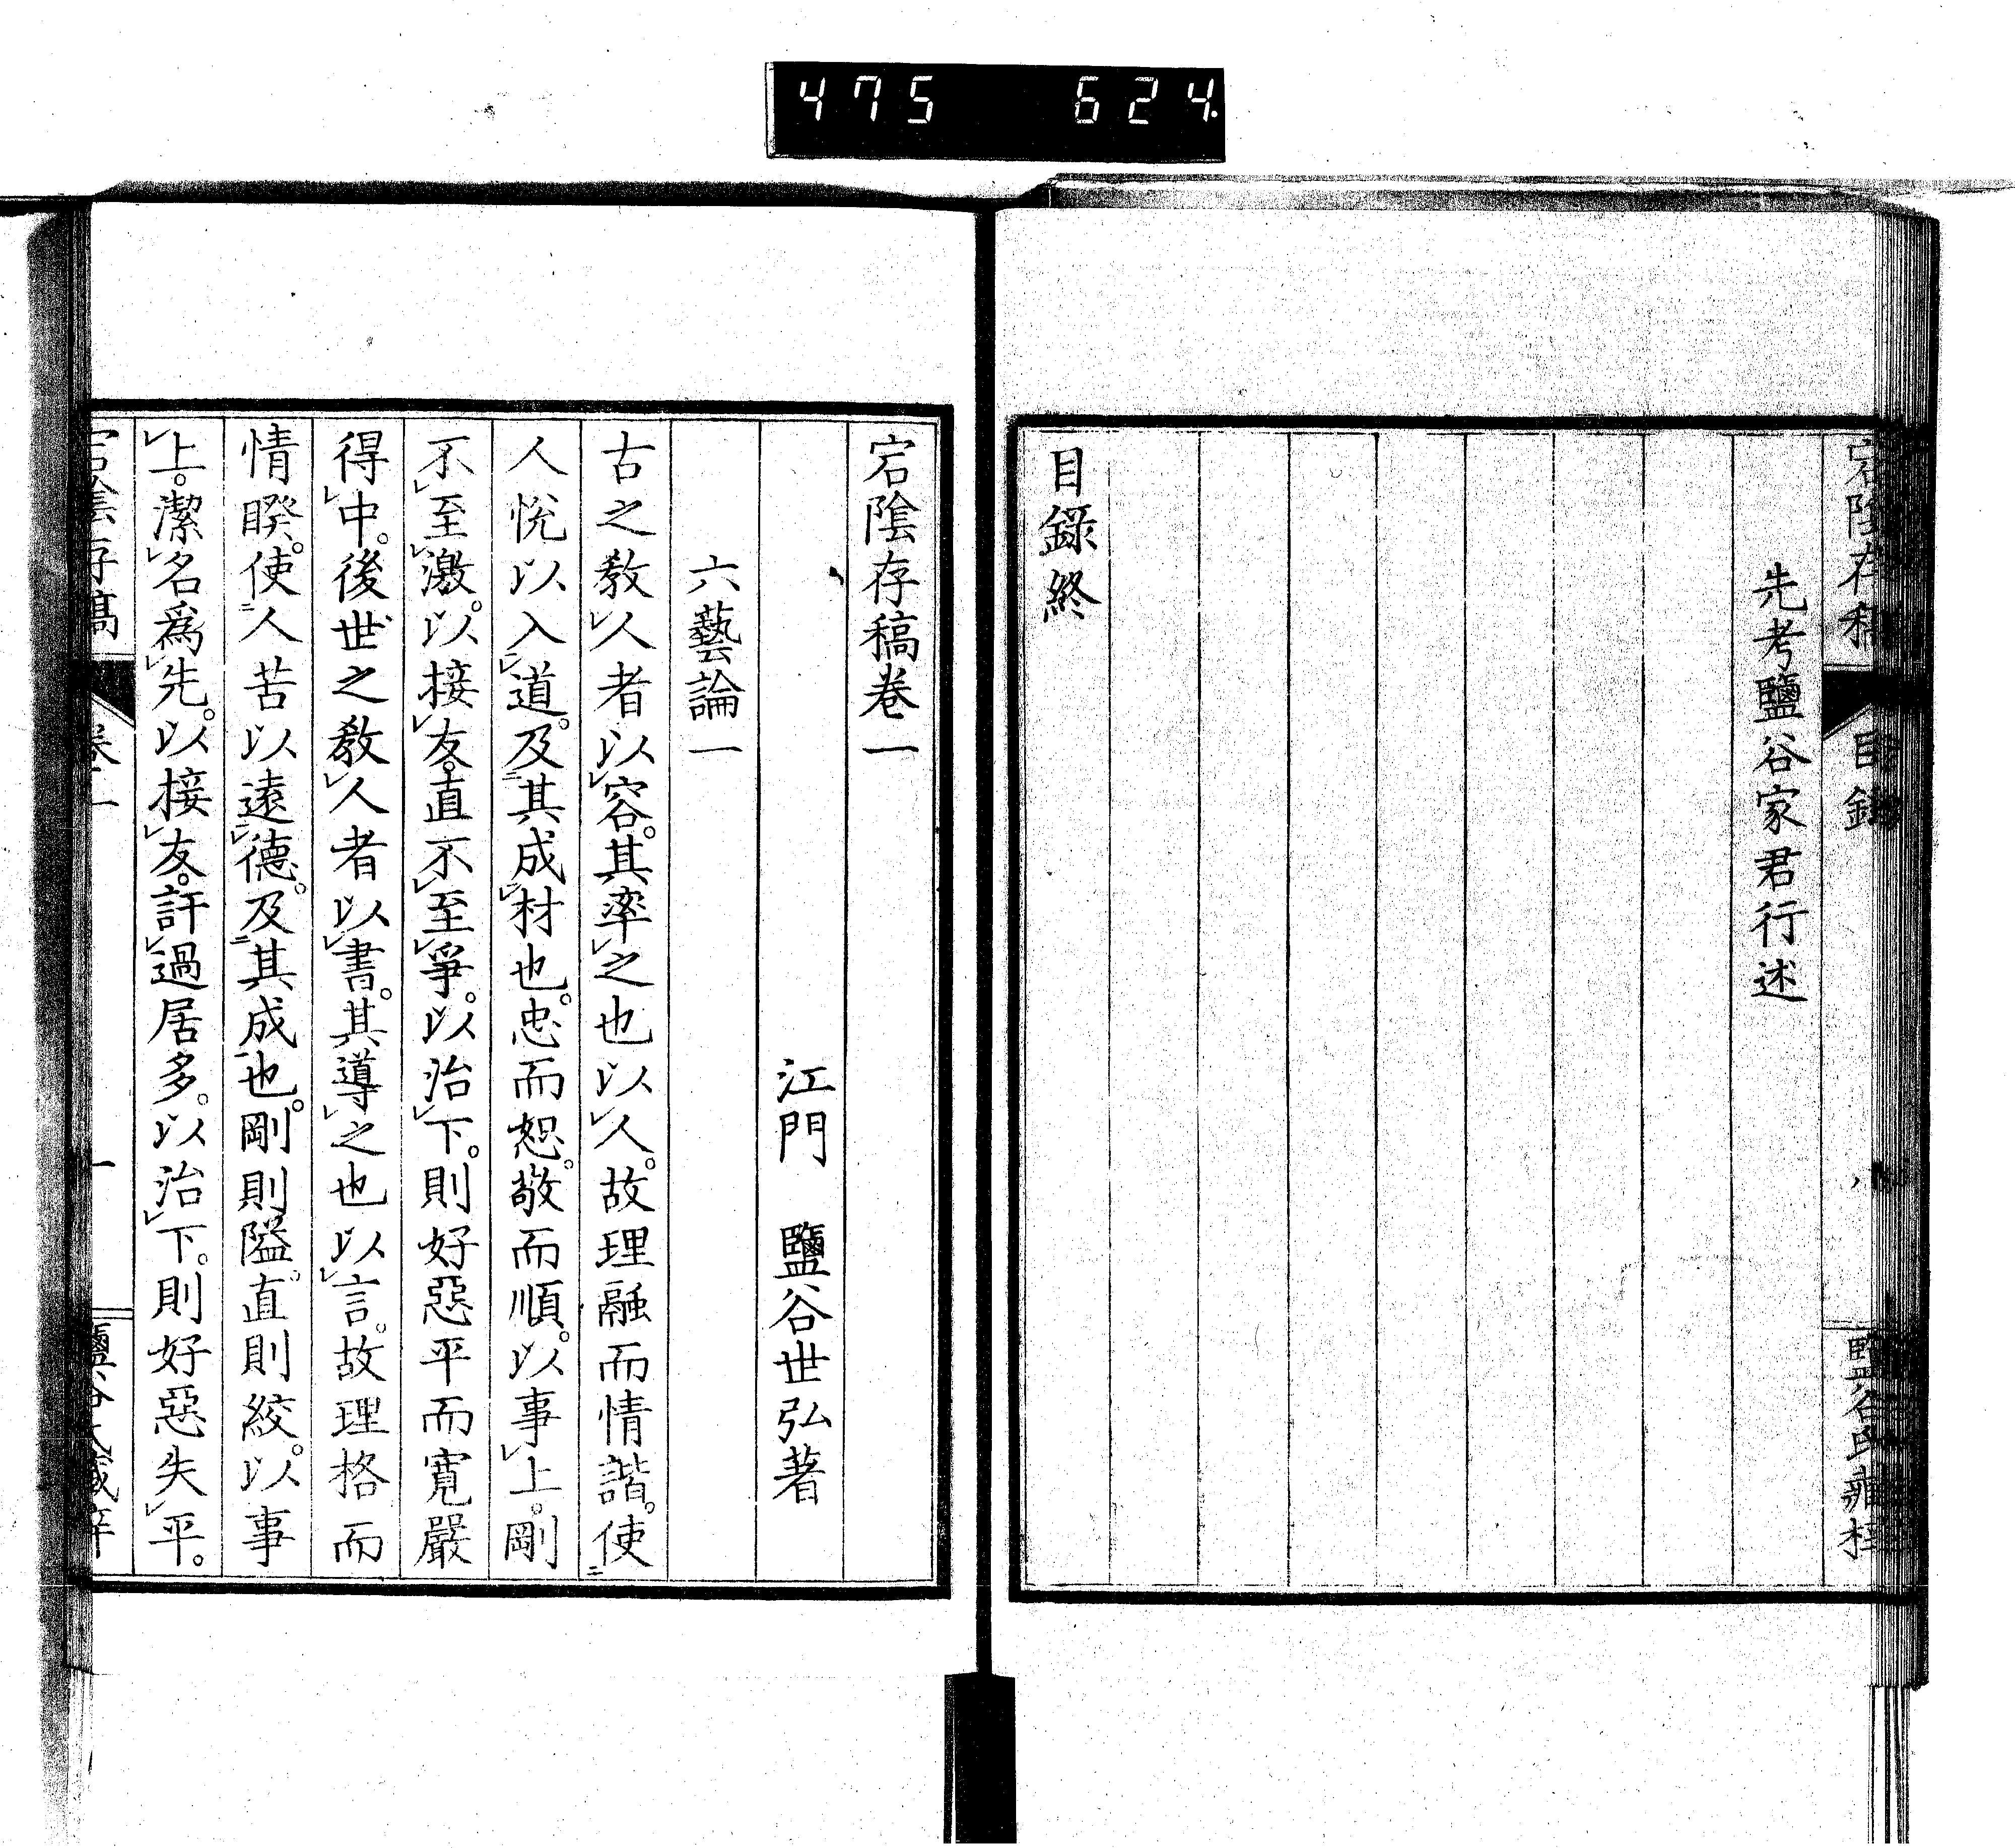 475 624
宕陰存稿
目錄
鹽谷氏藏梓
先考鹽谷家君行述
目錄終
宕陰存稿卷一
江門 鹽谷世弘著
六藝論一
古之敎㆑人者以㆑容。其率㆑之也以㆑人。故理融而情諧。使㆓
人悅以入㆒㆑道。及㆓其成㆒㆑材也。忠而恕。敬而順。以事㆑上。剛
不㆑至㆑激。以接㆑友。直不㆑至㆑爭。以治㆑下。則好惡平而寬嚴
得㆑中。後世之敎㆑人者以㆑書。其導㆑之也以㆑言。故理格而
情睽。使㆓人苦以遠㆒㆑德。及㆓其成㆒也。剛則隘。直則絞。以事
㆑上。潔㆑名爲㆑先。以接㆑友。訐㆑過居多。以治㆑下。則好惡失㆑平。
宕陰存稿
卷一
一
鹽谷氏藏梓